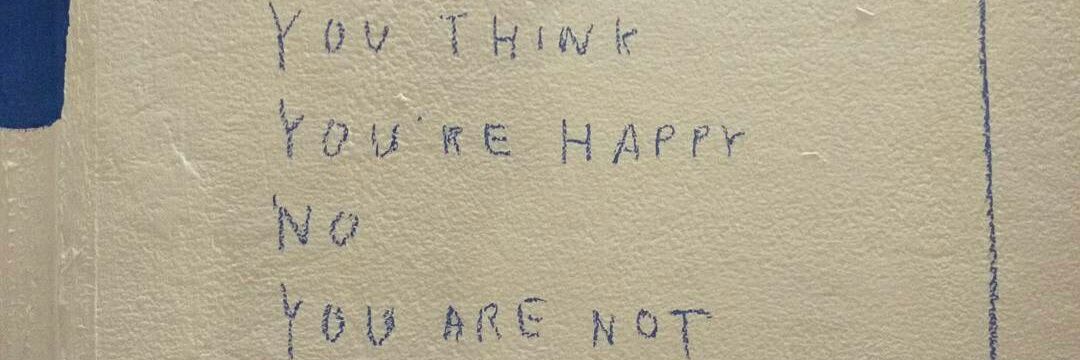 YOU THINK
YOU'RE HAPPY
NO
YOU ARE NOT